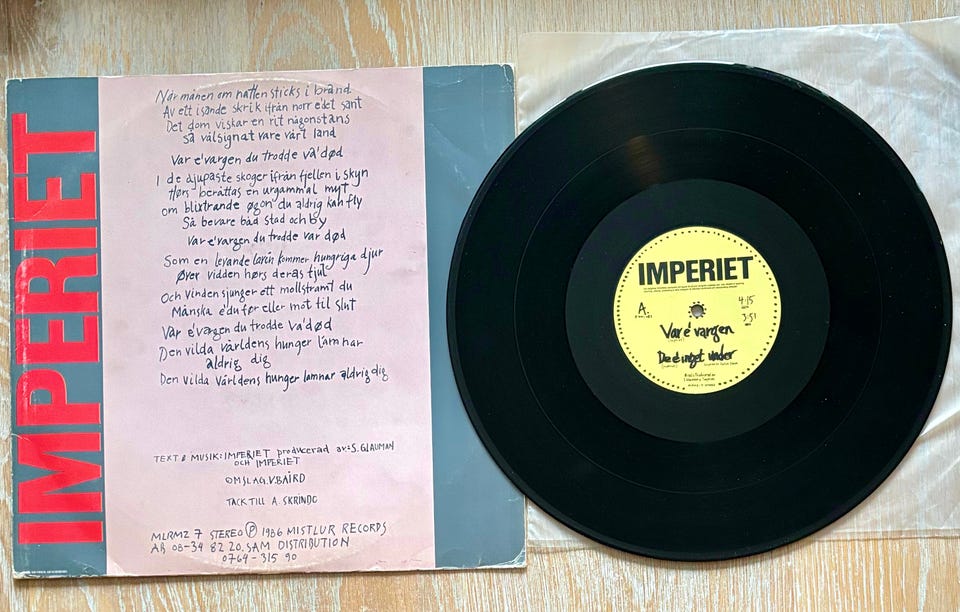 IMPERIET
När månen om natten sticks i brand
Av ett isande skrik ifrån norr e det sant
Det dom viskar en rit någonstans
Så välsignat vare vårt land
Var e' vargen du trodde va' död
I de djupaste skoger ifrån fjellen i skyn
Hørs berättas en urgammal myt
om blixtrande øgon du aldrig kan fly
Så bevare båd stad och by
Var e' vargen du trodde var død
Som en levande lavin kommer hungriga djur
Øver vidden hørs deras tjut
Och vinden sjunger ett mollstramt du
Månska e du før eller mot til slut
Var e' vargen du trodde va' død
Den vilda världens hunger lämnar
aldrig dig
Den vilda världens hunger lamnar aldrig dig
TEXT & MUSIK: IMPERIET producerad av: S. GLAUMAN
OCH IMPERIET
OMSLAG. V. BAIRD
TACK TILL A. SKRINDO
MLRMZ 7 STEREO Ⓟ 1986 MISTLUR RECORDS
AB 08-34 82 20. SAM DISTRIBUTION
0764-315 90
IMPERIET
A.
4.15
3.51
Var e' vargen
De e' inget under